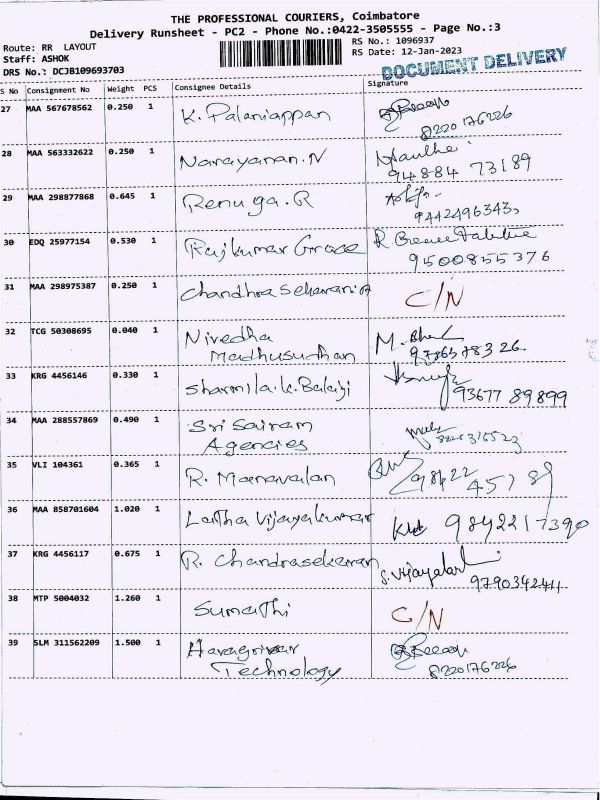 THE PROFESSIONAL COURIERS, Coimbatore
Delivery Runsheet - PC2 - Phone No.:0422-3505555 - Page No.:3
Route: RR LAYOUT
Staff: ASHOK
DRS No.: DCJB109693703
RS No.: 1096937
RS Date: 12-Jan-2023
DOCUMENT DELIVERY
S No Consignment No Weight PCS Consignee Details Signature
27 MAA 567678562 0.250 1 K. Palaniappan
8220176226
28 MAA 563332622 0.250 1 Narayanan.N
94884 73189
29 MAA 298877868 0.645 1 Renuga.R
30 EDQ 25977154 0.530 1 Rajkumar Grace
9500855376
31 MAA 298975387 0.250 1 Chandhra Sekaran C/N
32 TCG 50308695 0.040 1 Nivedha
Madhusudhan
33 KRG 4456146 0.330 1 Sharmila.k.Balaji
93677 89899
34 MAA 288557869 0.490 1 Sri Sairam
Agencies
35 VLI 104361 0.365 1 R. Manavalan
98422 45789
36 MAA 858701604 1.020 1 Latha Vijayakumar 9842217390
37 KRG 4456117 0.675 1 R. Chandrasekaran S. Vijayalak
9790342411
38 MTP 5004032 1.260 1 Sumathi C/N
39 SLM 311562209 1.500 1 Hayagrivar
Technology 8220176226